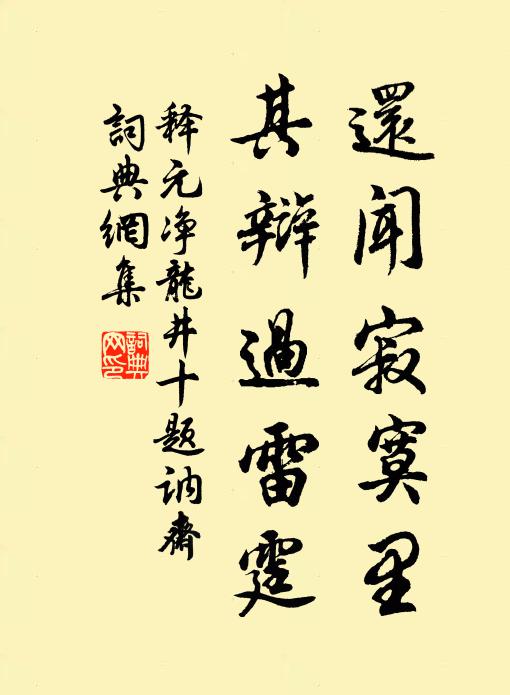 還聞寂寞里
其辯過雷霆
释元净龍井十题讷齋
詞典網集
詞典
网印